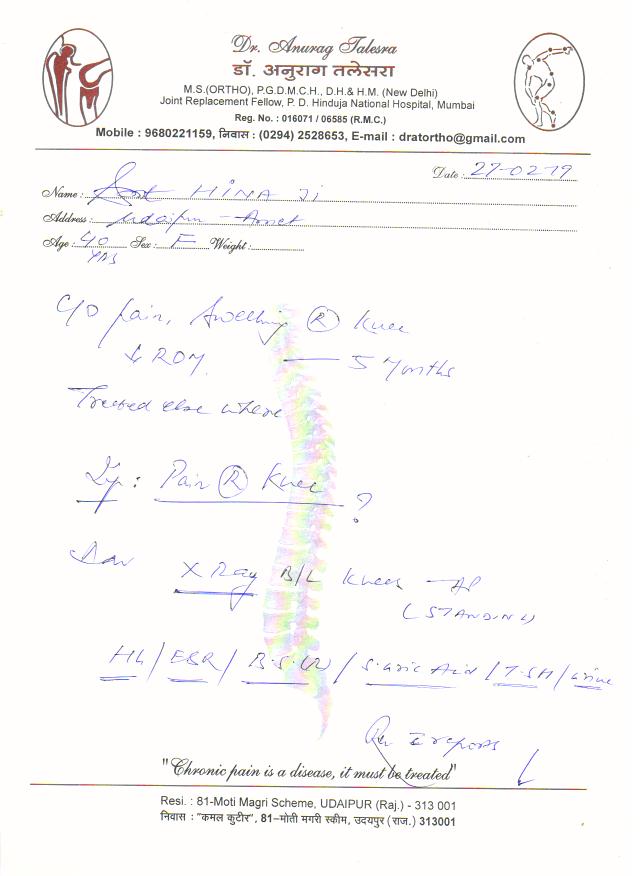 Dr. Anurag Talesra
डॉ. अनुराग तलेसरा
M.S.(ORTHO), P.G.D.M.C.H., D.H.& H.M. (New Delhi)
Joint Replacement Fellow, P. D. Hinduja National Hospital, Mumbai
Reg. No. : 016071 / 06585 (R.M.C.)
Mobile : 9680221159, निवास : (0294) 2528653, E-mail : dratortho@gmail.com
Date : 27-02-19
Name : Smt HINA Ji
Address : Udaipur - Amet
Age : 40 yrs Sex : F Weight :
C/O Pain, Swelling (R) Knee
↓ ROM — 5 Months
Treated else where
Imp : Pain (R) Knee ?
Adv X Ray B/L Knees - AP
(STANDING)
Hb / ESR / B.S.(R) / S. Uric Acid / T.S.H / Urine
Rv c̄ reports
"Chronic pain is a disease, it must be treated"
Resi. : 81-Moti Magri Scheme, UDAIPUR (Raj.) - 313 001
निवास : "कमल कुटीर", 81–मोती मगरी स्कीम, उदयपुर (राज.) 313001